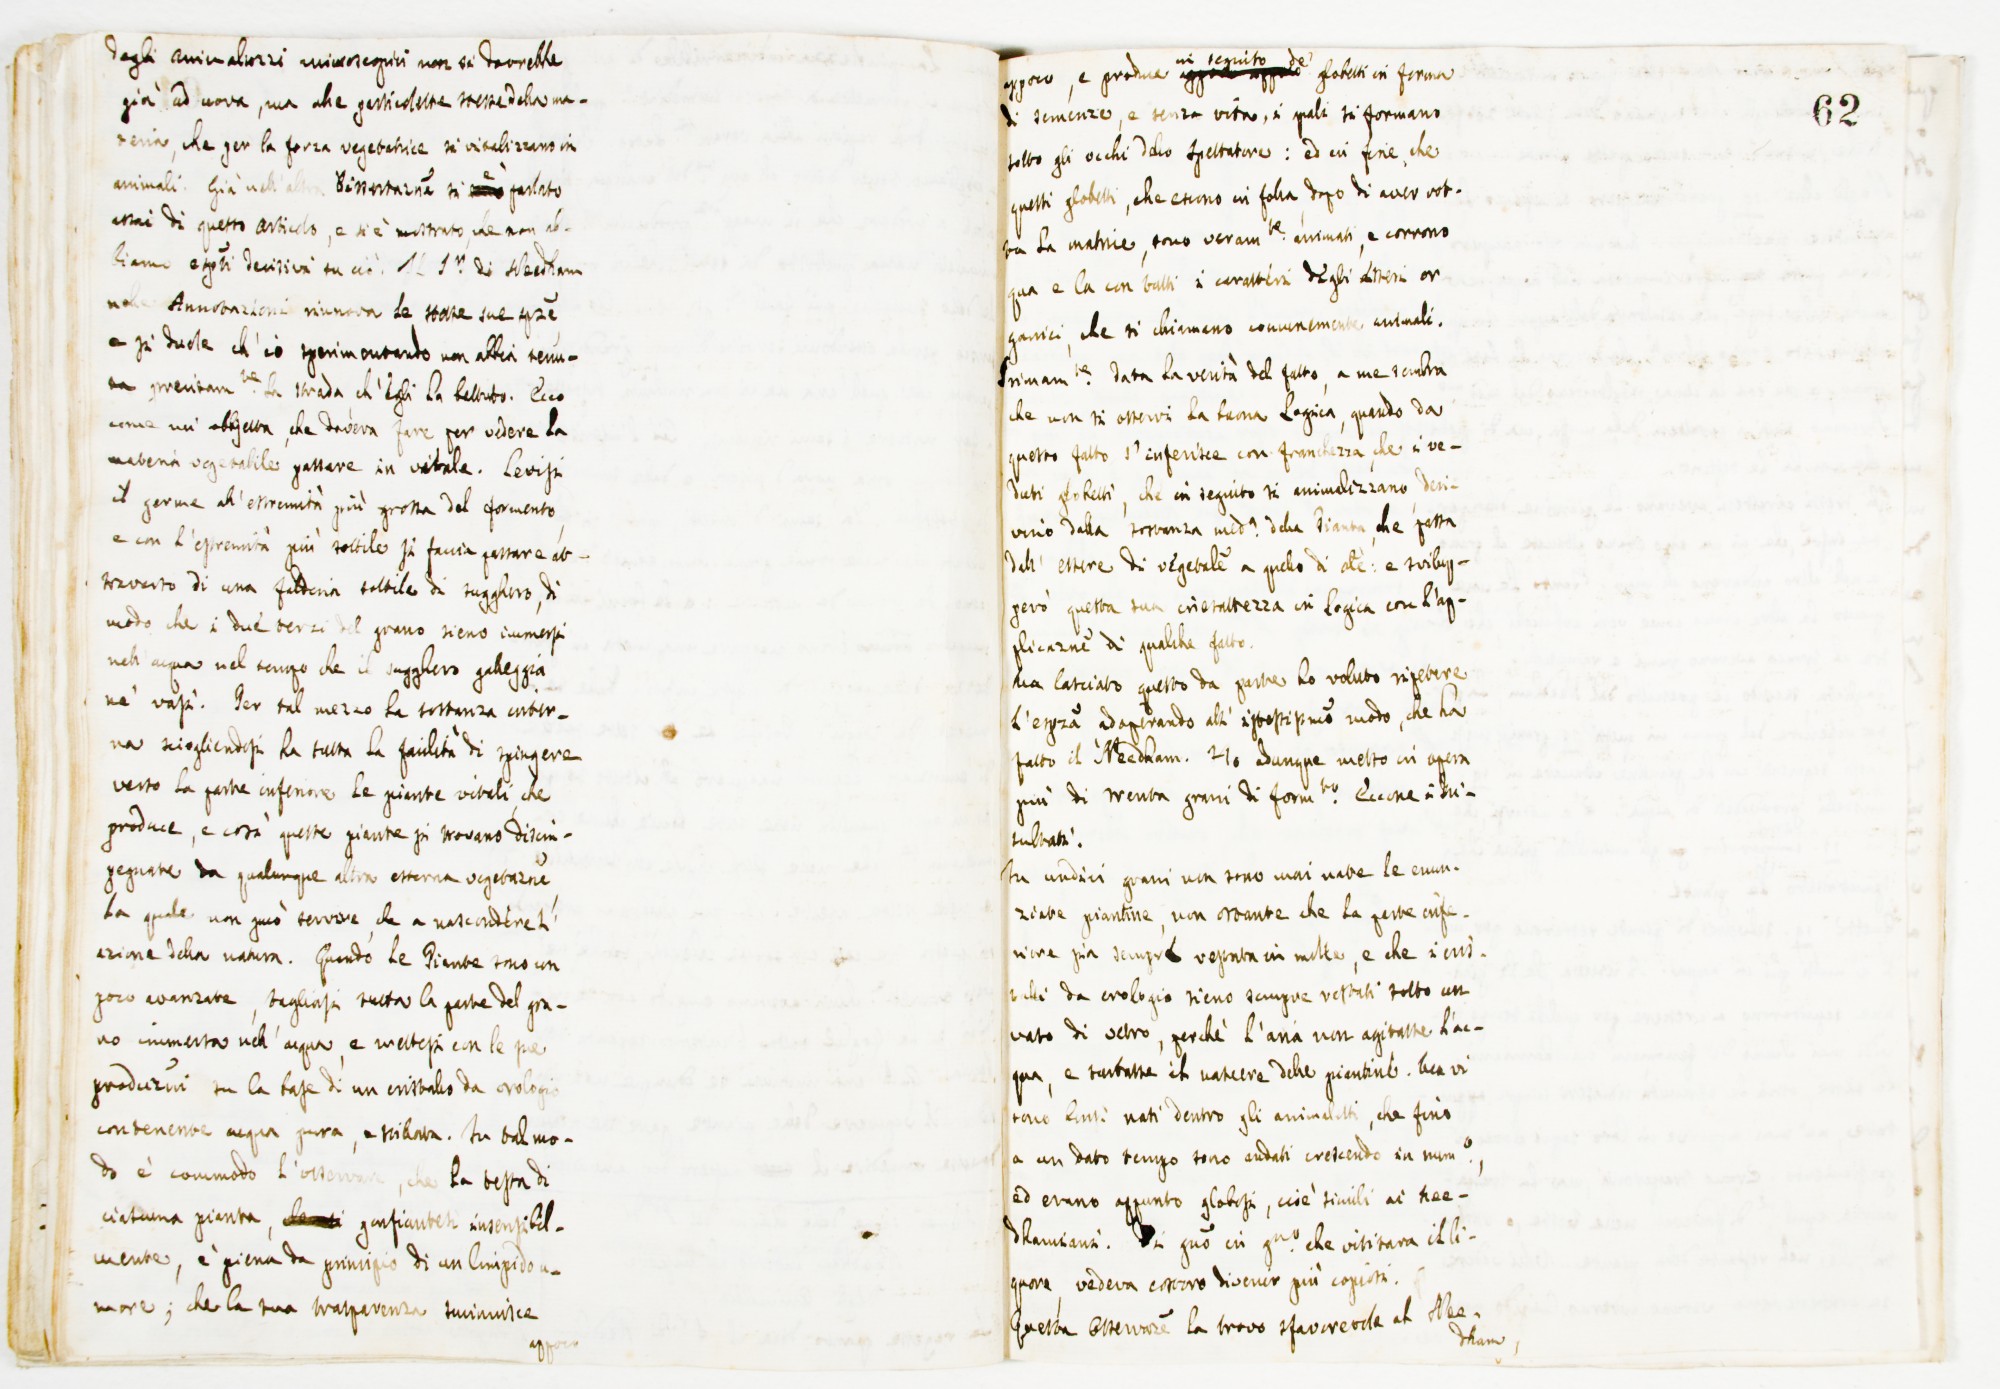 degli animaluzzi microscopici non si dovrebbe
già ad uova, ma alle particolette stesse della ma-
teria, che per la forza vegetatrice si vitalizzano in
animali. Già nell'altra Dissertaznẽ si è parlato
assai di questo articolo, e si è mostrato, che non ab-
biamo decisivi su ciò. Il Sr. di Needham
nelle Annotazioni rinnova le stesse sue spzẽ
e si duole ch'io sperimentando non abbia tenu-
ta precisamte. la strada ch'Egli ha battuto. Ecco
come mi obbjetta, che doveva fare per vedere la
materia vegetabile passare in vitale. Levisi
il germe all'estremità più grossa del formento,
e con l'estremità più sottile si faccia passare at-
traverso di una falderia sottile di sugghero, di
modo che i due terzi del grano sieno immersi
nell'acqua nel tempo che il sugghero galleggia
ne' vasi. Per tal mezzo la sostanza inter-
na sciogliendosi ha tutta la facilità di spingere
verso la parte inferiore le piante vitali, che
produce, e così queste piante si trovano disim-
pegnate da qualunque altra esterna vegetaznẽ
la quale non può servire, che a nascondere l'
azione della natura. Quando le Piante sono un
poco avanzate, tagliasi tutta la parte del gra-
no immersa nell'acqua, e mettesi con le sue
produzni su la base di un cristallo da orologio
contenente acqua pura, e stillata. In tal mo-
do è commodo l'osservare, che la testa di
ciascuna pianta, gonfiantesi insensibil-
mente, è piena da principio di un limpido u-
more; che la sua trasparenza sminuisce
appoco
appoco, e produce in seguito de' globetti in forma
di semenze, e senza vita, i quali si formano
sotto gli occhi dello Spettatore: ed in fine, che
questi globetti, che escono in folla, dopo di aver rot-
ta la matrice, sono veramte. animati, e corrono
qua e là con tutti i caratteri degli Esseri or
ganici, che si chiamano comunemente animali.
Primamte. data la verità del fatto, a me sembra
che non si osservi la buona Logica, quando da
questo fatto s'inferisce con franchezza, che i ve-
duti globetti, che in seguito si animalizzano, deri-
vino dalla sostanza meda. della Pianta, che passa
dall'essere di vegetale a quello di alẽ: e svilup-
però questa sua inesattezza in Logica con l'ap-
plicaznẽ di qualche fatto.
Ma lasciato questo da parte ho voluto ripetere
l'espzã adoperando all'istessissimo modo, che ha
fatto il Needham. Ho adunque messo in opera
più di trenta grani di formto. Eccone i ri-
sultati.
In undici grani non sono mai nate le enun-
ziate piantine, non ostante che la parte infe-
riore sia sempre restata in molle, e che i cris-
talli da orologio sieno sempre restati sotto un
vaso di vetro, perchè l'aria non agitasse l'ac-
qua, e turbasse il nascere delle piantine. Ma vi
sono bensì nati dentro gli animaletti, che fino
a un dato tempo sono andati crescendo in numo.,
ed erano appunto globosi, cioè simili ai Nee-
dhamiani. Di gnõ in gno. che visitava il li-
quore, vedeva costoro divenir più copiosi.
Questa Osservazẽ la trovo sfavorevole al Nee-
dham,
62